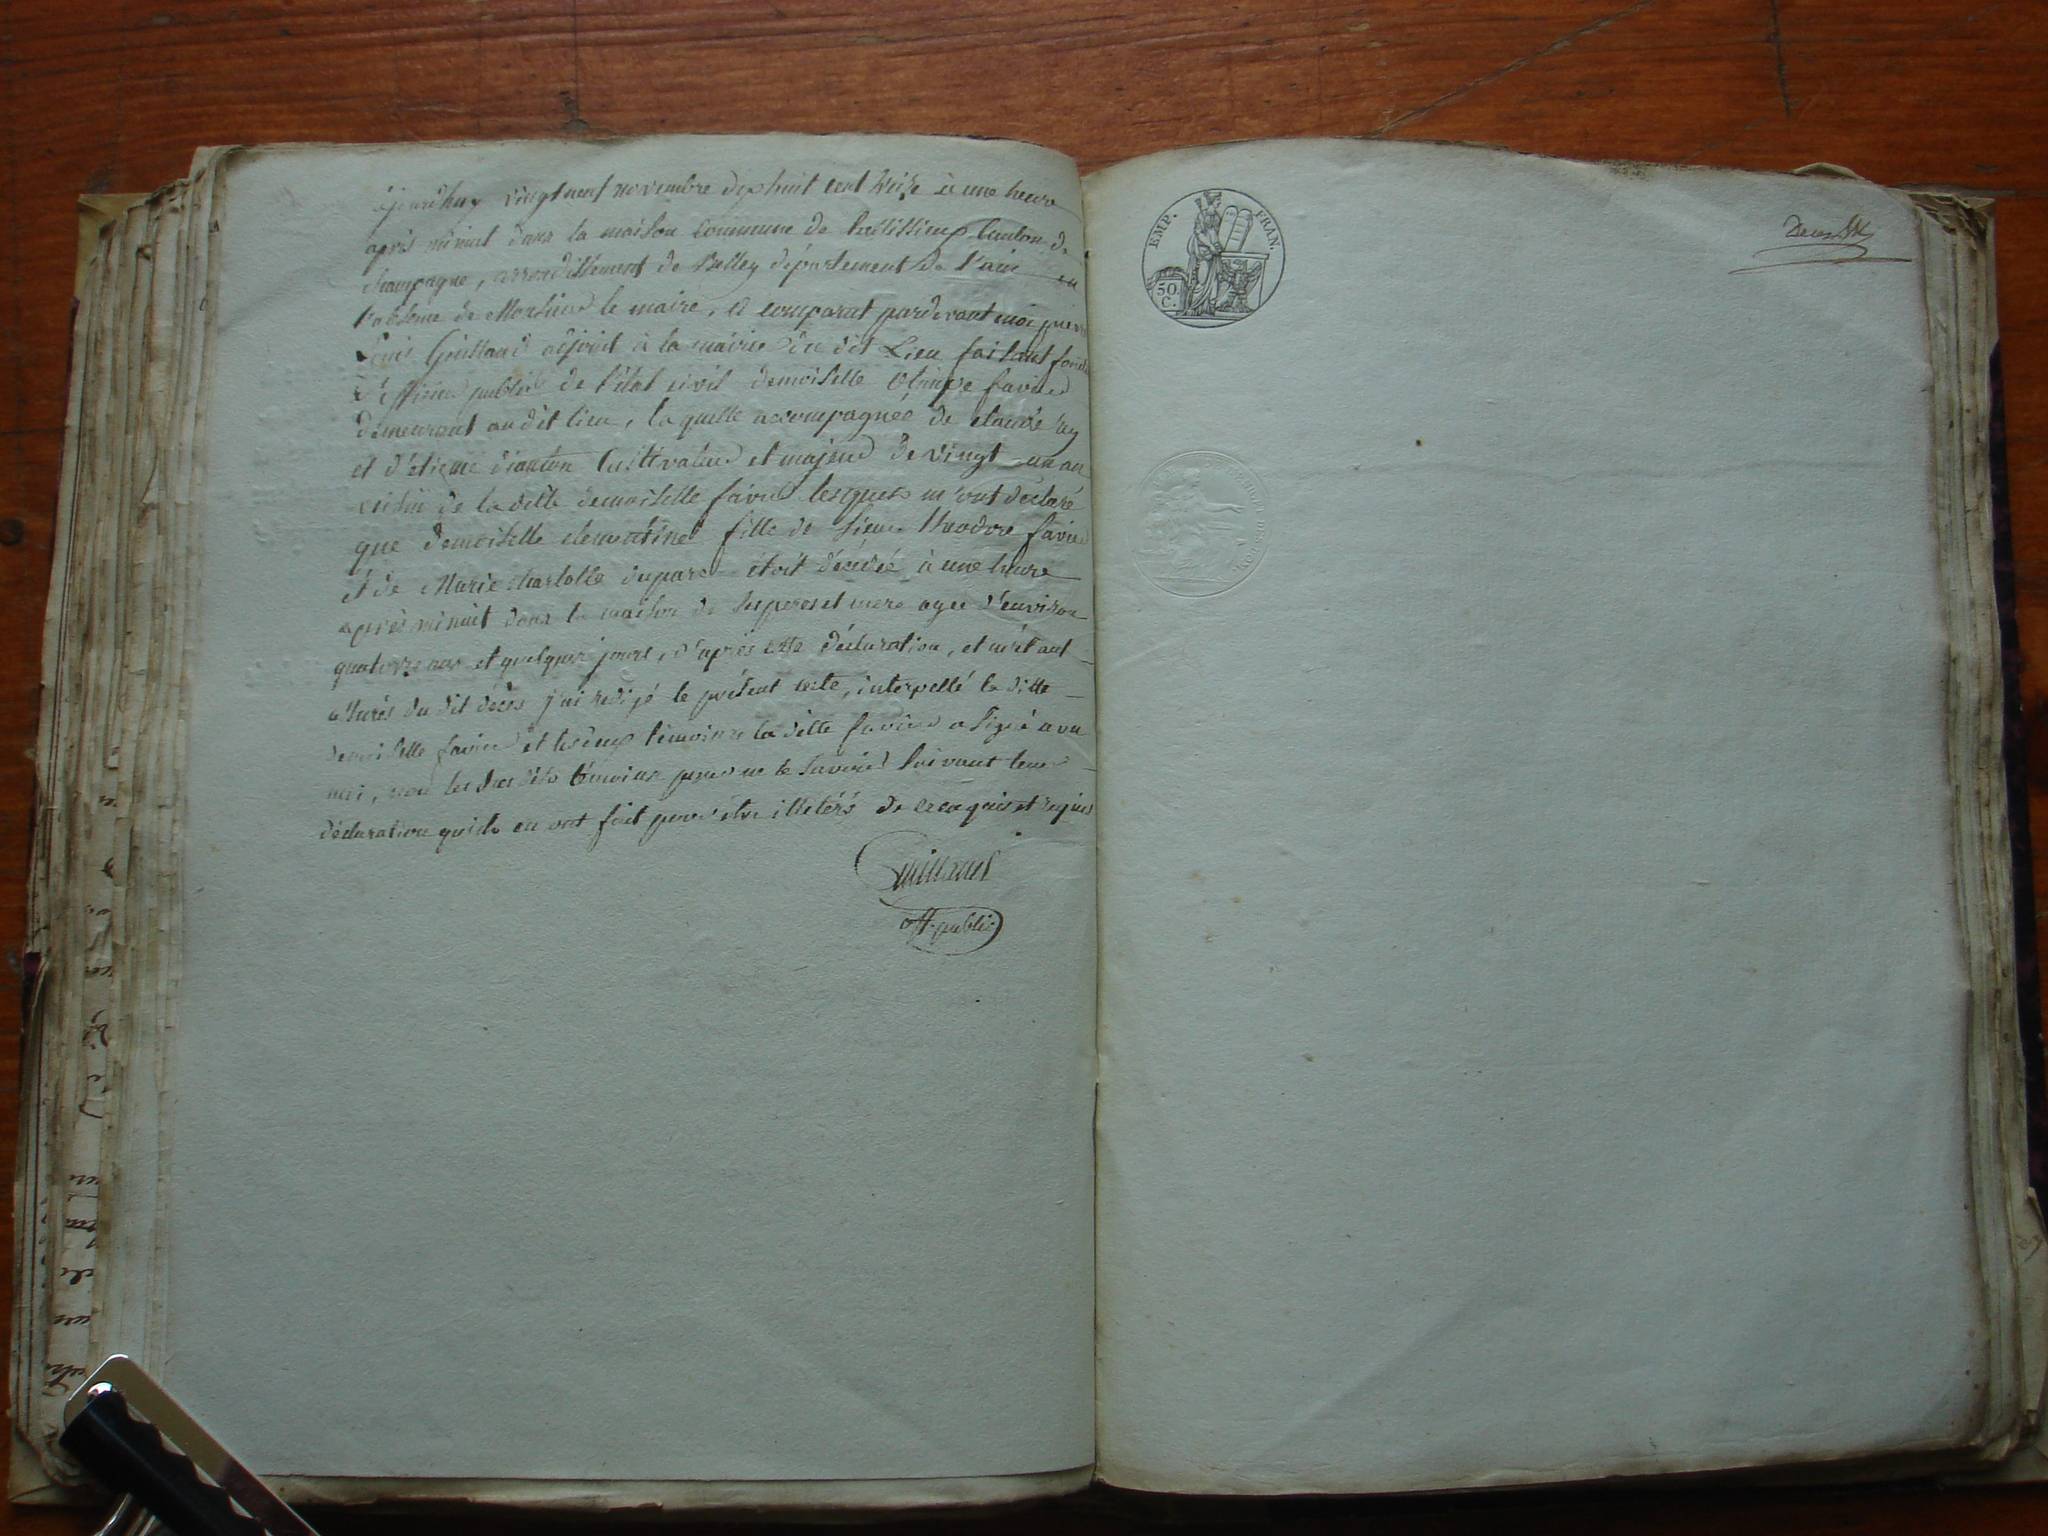 ajourdhuy vingt neuf novembre dix huit cent treize à une heure
après minuit dans la maison commune de Canton de
champagne, arrondissement de Belley département de l'ain en
l'absence de Monsieur le maire, a comparut pardevant moi pierre
Louis Guilland adjoint à la mairie du dit Lieu faisant fonc
d'officier public de l'état civil demoiselle Olimpe favier
demeurant au dit lieu, laquelle accompagnée de claude rey
et d'etienne cultivateur et majeur de vingt un an
voisin de la ditte demoiselle favier lesquels m'ont déclaré
que demoiselle clementine fille de sieur theodore favier
et de Marie charlotte duparc étoit décédée à une heure
après minuit dans la maison de ses peres et mere agee d'environ
quatorze ans et quelques jours, d'après cette déclaration, et m'étant
assurés du dit décès j'ai redigé le présent acte, interpellé la ditte
demoiselle favier et les deux témoins la ditte favier a signé avec
moi, non les dits témoins pour ne le savoir suivant leur
déclaration quils en ont fait pour être illetérés de ce enquis et requis
Guilland
off. public
EMP. FRAN.
50 C.